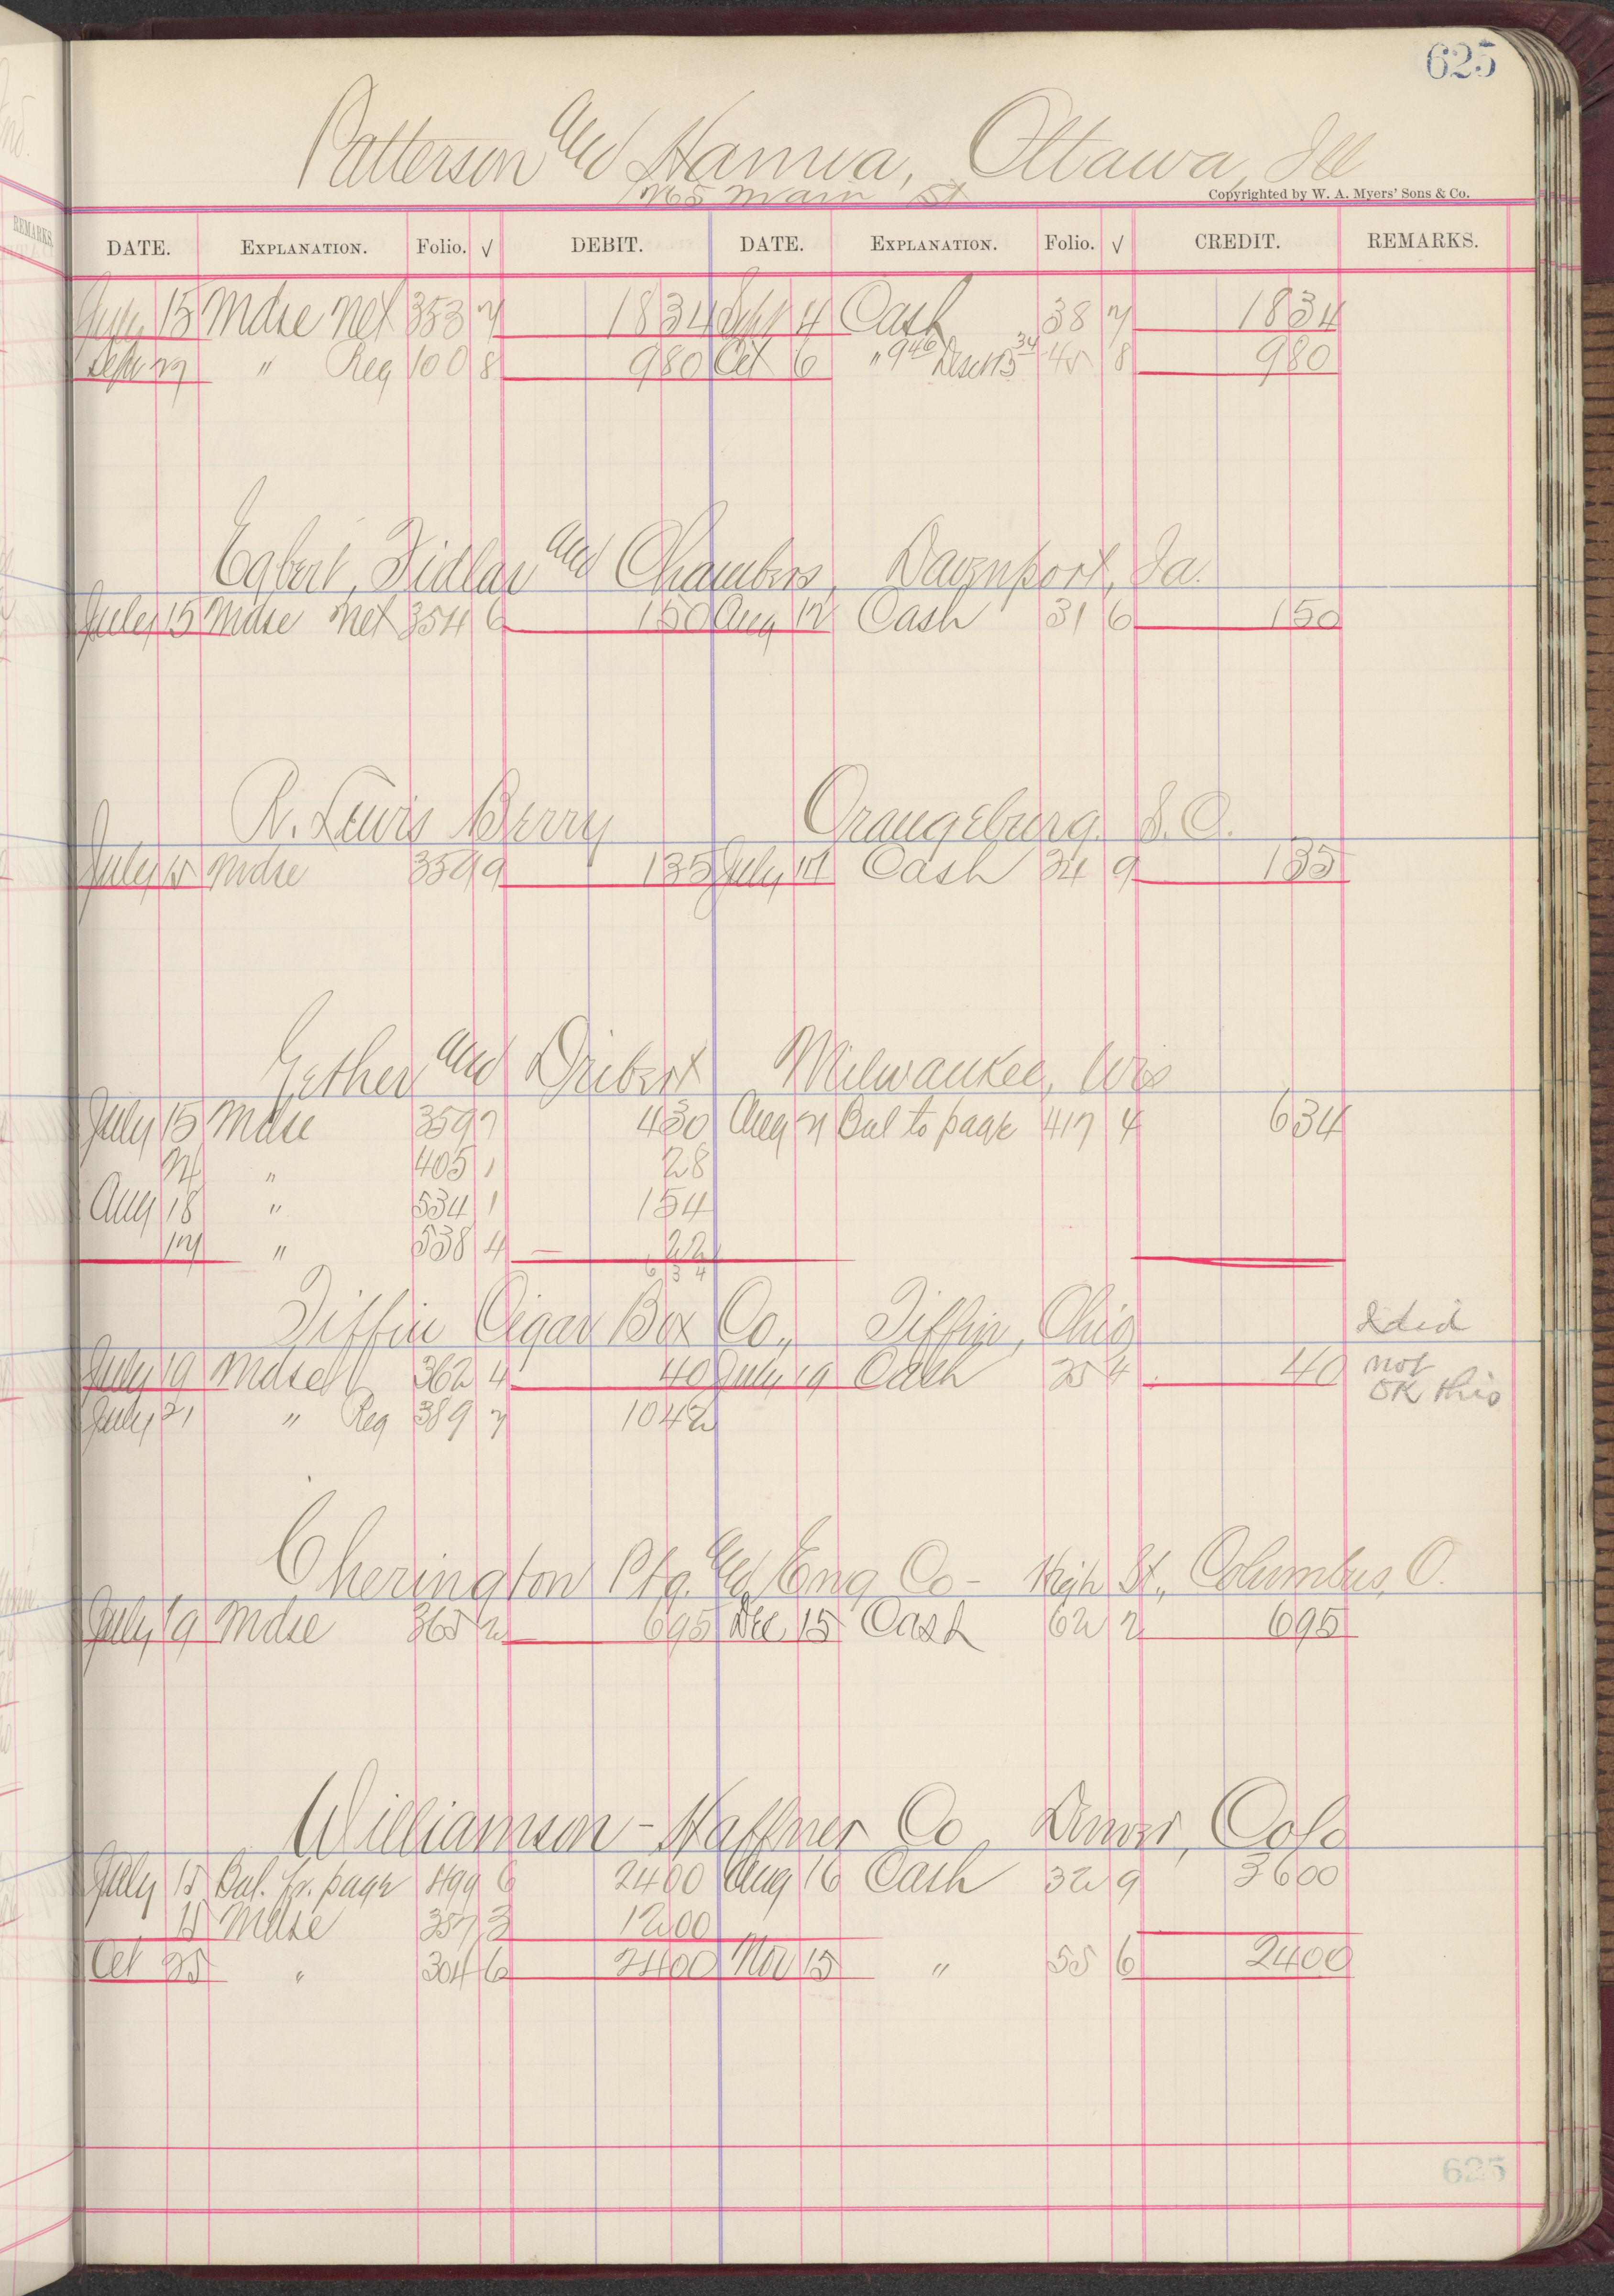 625
Patterson and Hanna, Ottawa, Ill
Main St
Copyrighted by W. A. Myers' Sons & Co.
DATE. EXPLANATION. Folio. √ DEBIT. DATE. EXPLANATION. Folio. √ CREDIT. REMARKS.
July 15 Mdse Net 353 7 1834 Sept 4 Cash 38 7 1834
Sept 27 " Reg 100 8 980 Oct 6 " 9 46 Disct 34 45 8 980
Egbert, Fidlar and Chambers, Davenport, Ia.
July 15 Mdse Net 354 6 150 Aug 12 Cash 31 6 150
R. Lewis Berry Orangeburg S.C.
July 15 Mdse 359 9 135 July 14 Cash 24 9 135
Gether and Dribert Milwaukee, Wis
July 15 Mdse 359 7 430 Aug 21 Bal to page 417 4 634
24 " 405 1 28
Aug 18 " 534 1 154
17 " 538 4 22
634
Tiffin Cigar Box Co., Tiffin, Ohio
I did
July 19 Mdse 362 4 40 July 19 Cash 25 4 40 not
OK this
July 21 " Reg 389 7 1042
Cherington Ptg. and Eng Co - High St., Columbus, O.
July 19 Mdse 365 2 695 Dec 15 Cash 62 2 695
Williamson-Haffner Co, Denver, Colo
July 15 Bal. fr. page 499 6 2400 Aug 16 Cash 32 9 3600
15 Mdse 357 3 1200
Oct 25 " 304 6 2400 Nov 15 " 55 6 2400
625